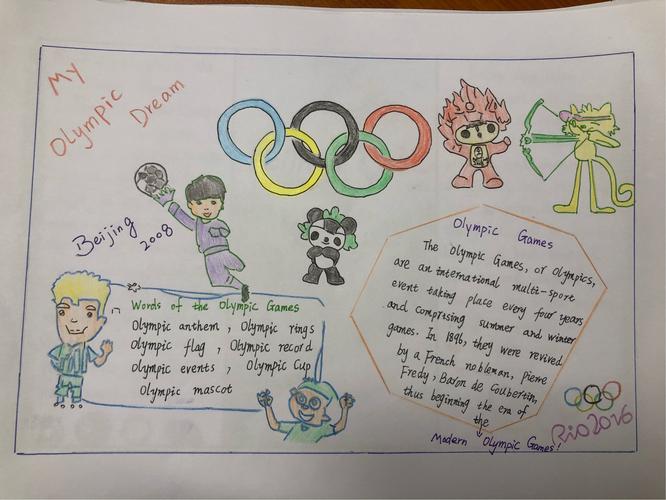 My
Olympic Dream
Beijing
2008
Words of the Olympic Games
Olympic anthem , Olympic rings
Olympic flag , Olympic record
Olympic events , Olympic Cup
Olympic mascot
Olympic Games
The Olympic Games, or Olympics,
are an international multi-sport
event taking place every four years
and comprising summer and winter
games. In 1896, they were revived
by a French nobleman, Pierre
Fredy, Baron de Coubertin,
thus beginning the era of
the
Modern Olympic Games!
Rio2016